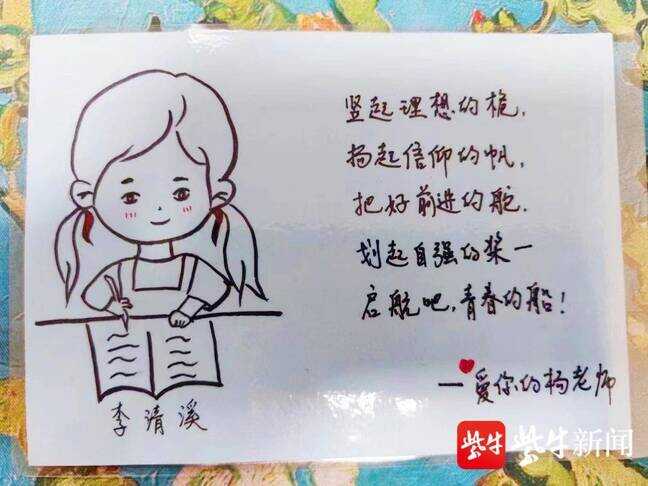 竖起理想的桅,
扬起信仰的帆,
把好前进的舵.
划起自强的桨—
启航吧,青春的船!
—爱你的杨老师
李清溪
紫牛 紫牛新闻